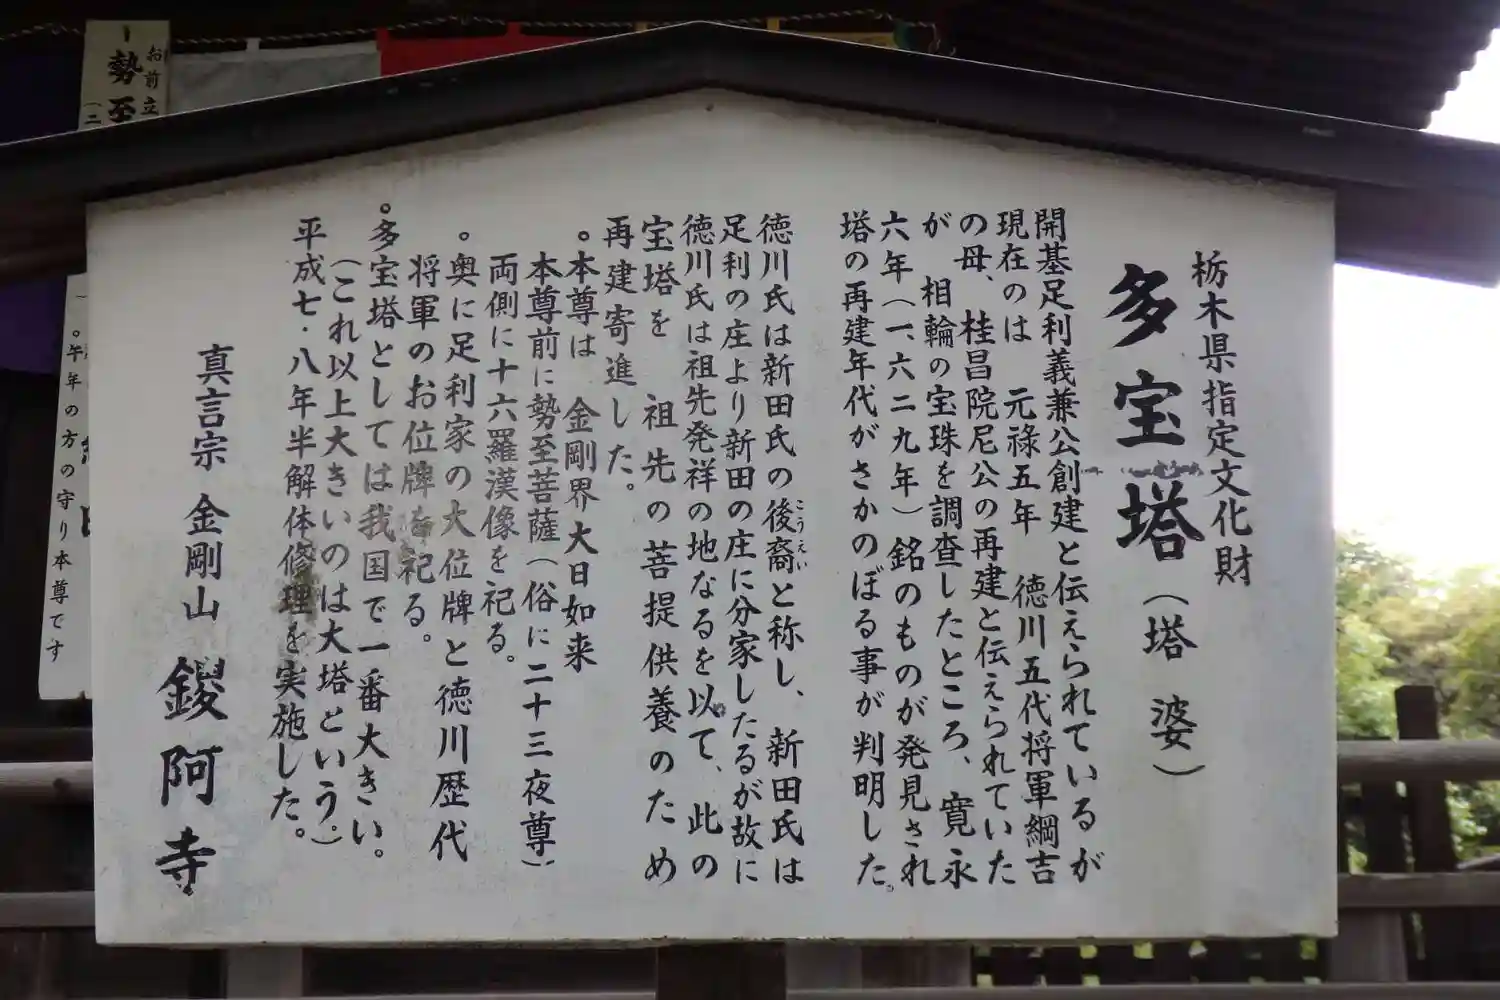 栃木県指定文化財
多宝塔（塔婆）
開基足利義兼公創建と伝えられているが
現在のは 元禄五年 徳川五代将軍綱吉
の母、桂昌院尼公の再建と伝えられていた
が 相輪の宝珠を調査したところ、寛永
六年（一、六二九年）銘のものが発見され
塔の再建年代がさかのぼる事が判明した。
徳川氏は新田氏の後裔と称し、新田氏は
こうえい
足利の庄より新田の庄に分家したるが故に
徳川氏は祖先発祥の地なるを以て、此の
宝塔を 祖先の菩提供養のため
再建寄進した。
。本尊は 金剛界大日如来
本尊前に勢至菩薩（俗に二十三夜尊）
両側に十六羅漢像を祀る。
。奥に足利家の大位牌と徳川歴代
将軍のお位牌を祀る。
。多宝塔としては我国で一番大きい。
（これ以上大きいのは大塔という。）
平成七・八年半解体修理を実施した。
真言宗 金剛山 鑁阿寺
お前立
勢至
（二
。午年の方の守り本尊です